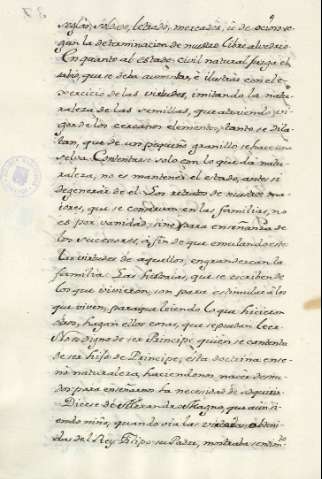 seglar, Soldado, letrado, mercader, ú de ocioso se-
gun la determinacion de nuestro libre alvedrio.
En quanto al estado civil natural juzga el
sabio, que se deba aumentar, é ilustrar con el e-
xercicio de las virtudes, imitando la natu-
raleza de las semillas, que atrayendo vi-
gor de los cercanos elementos, tanto se dila-
tan, que de un pequeño granillo se hace una
selva. Contentarse solo con lo que da natu-
raleza, no es mantener el estado, antes se
degenerar de el. Los retratos de nuestros ma-
iores, que se conservan en las familias, no
es por vanidad, sino para enseñanza de
los sucesores, á fin de que emulando es-
tas virtudes de aquellos, engrandezcan la
familia. Las historias, que se escriben de
los que vivieron, son para estimular á los
que viven, para que leiendo lo que hicieron
otros, hagan ellos cosas, que se puedan leer.
No es digno de ser Principe, quien se contenta
de ser hijo de Principe; esta doctrina ense-
ñó naturaleza, haciendonos nacer desnu-
dos para enseñarnos la necesidad de adquirir.
Dicese de Alexandro Magno, que aun si-
endo niño, quando oía las victorias obteni-
das del Rey Filipo su Padre, mostraba sentim.to